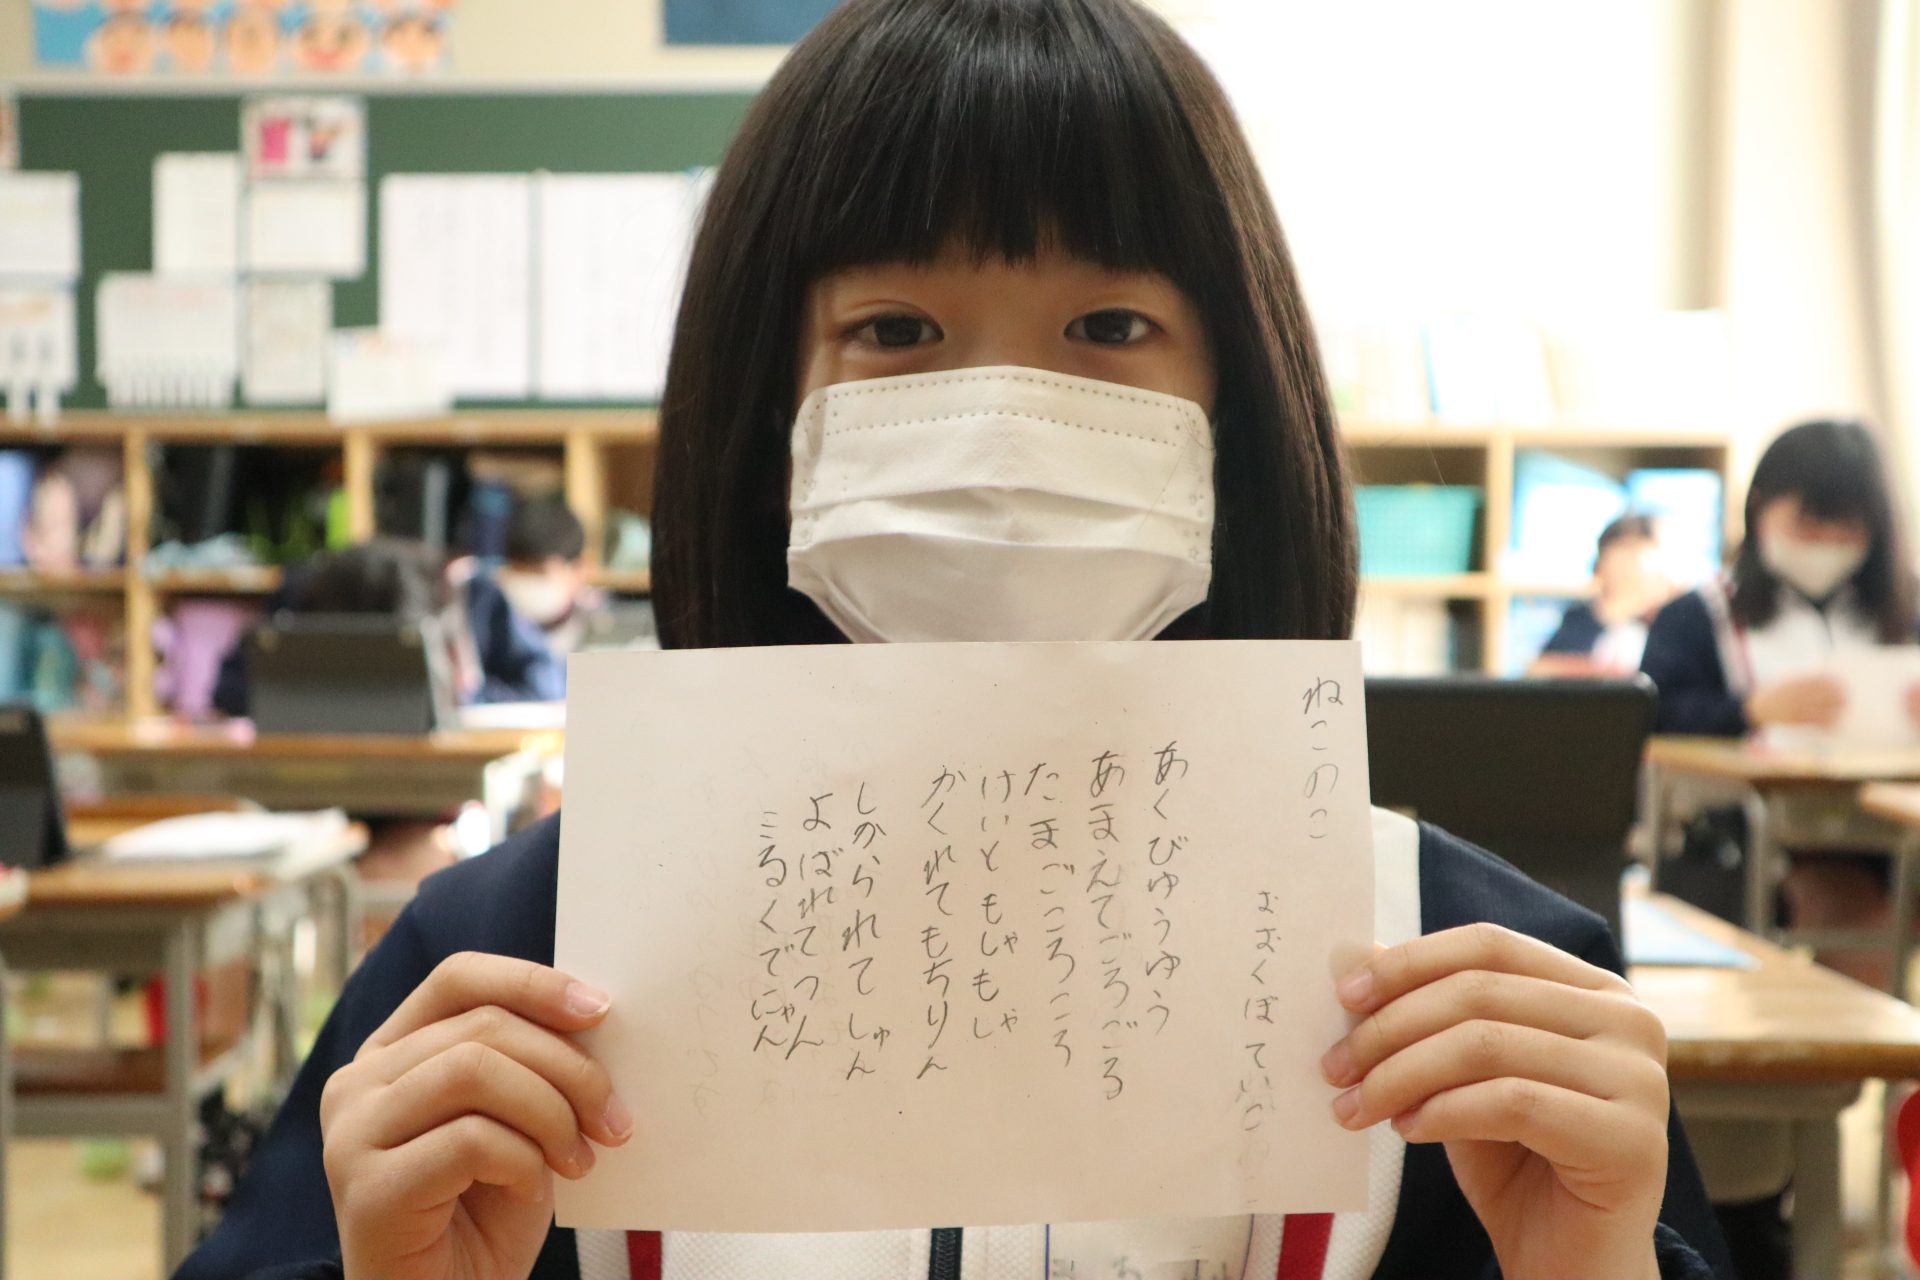 ねこのこ
おおくぼていこ
あくびゆうゆう
あまえてごろごる
たまごころころ
けいともしゃもしゃ
かくれてもちりん
しかられてしゅん
よばれてつん
ミるくでにゃん